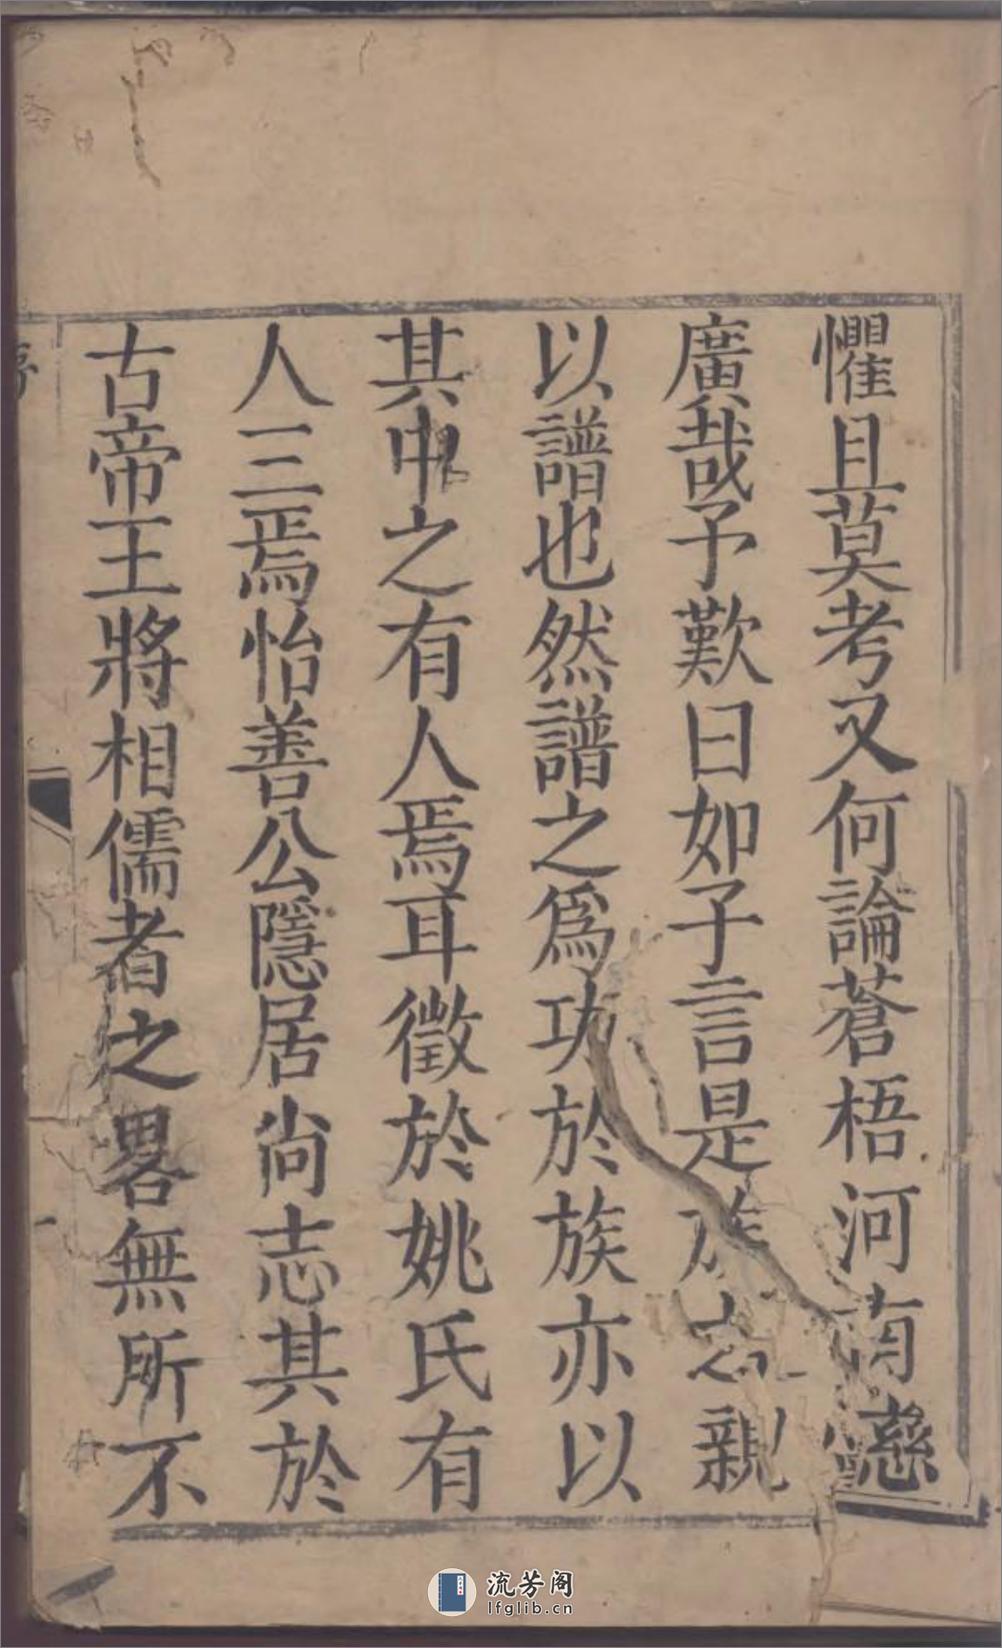 懼且莫考又何論蒼梧河南慈
廣哉予歎曰如子言是族之親
以譜也然譜之為功於族亦以
其中之有人焉耳徵於姚氏有
人三焉怡善公隱居尚志其於
古帝王將相儒者之畧無所不
序
流芳阁
lfglib.cn